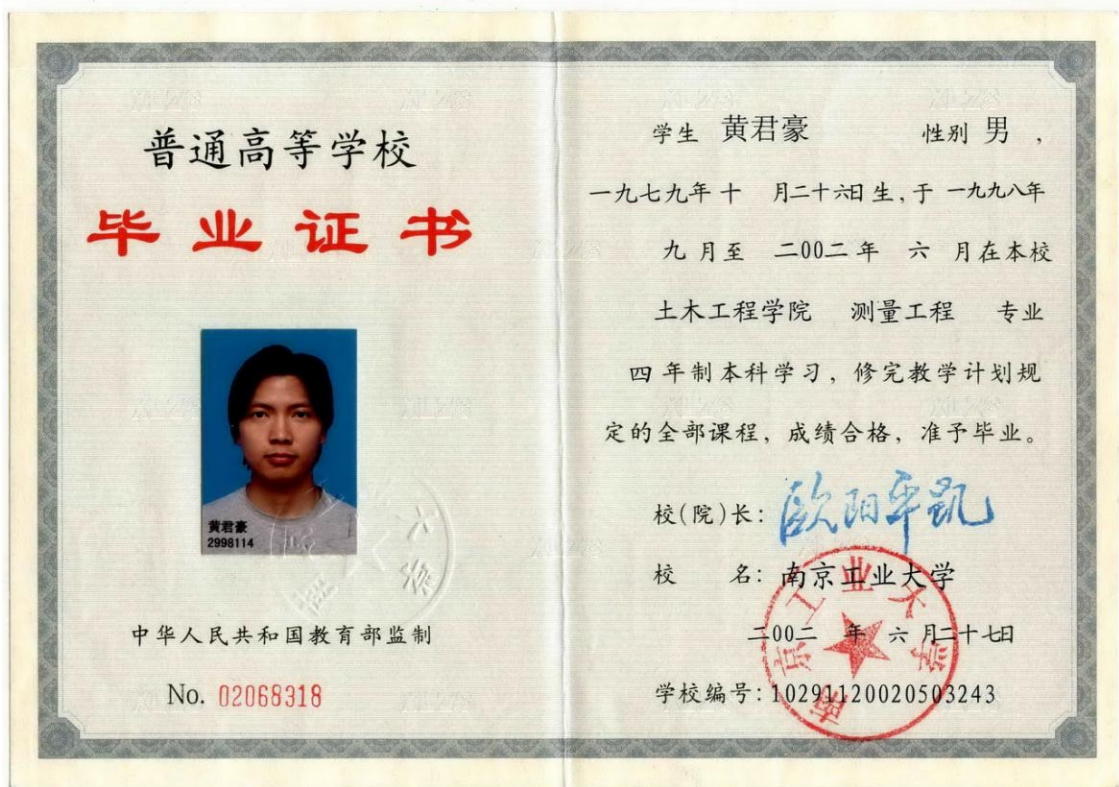 普通高等学校
毕业证书
黄君豪
2998114
中华人民共和国教育部监制
No. 02068318
学生 黄君豪 性别 男，
一九七九年十 月二十六日生，于 一九九八年
九月至 二00二年 六 月在本校
土木工程学院 测量工程 专业
四年制本科学习，修完教学计划规
定的全部课程，成绩合格，准予毕业。
校(院)长：欧阳平凯
校 名：南京工业大学
二00二 年 六 月二十七日
学校编号：10291120020503243
南京工业大学